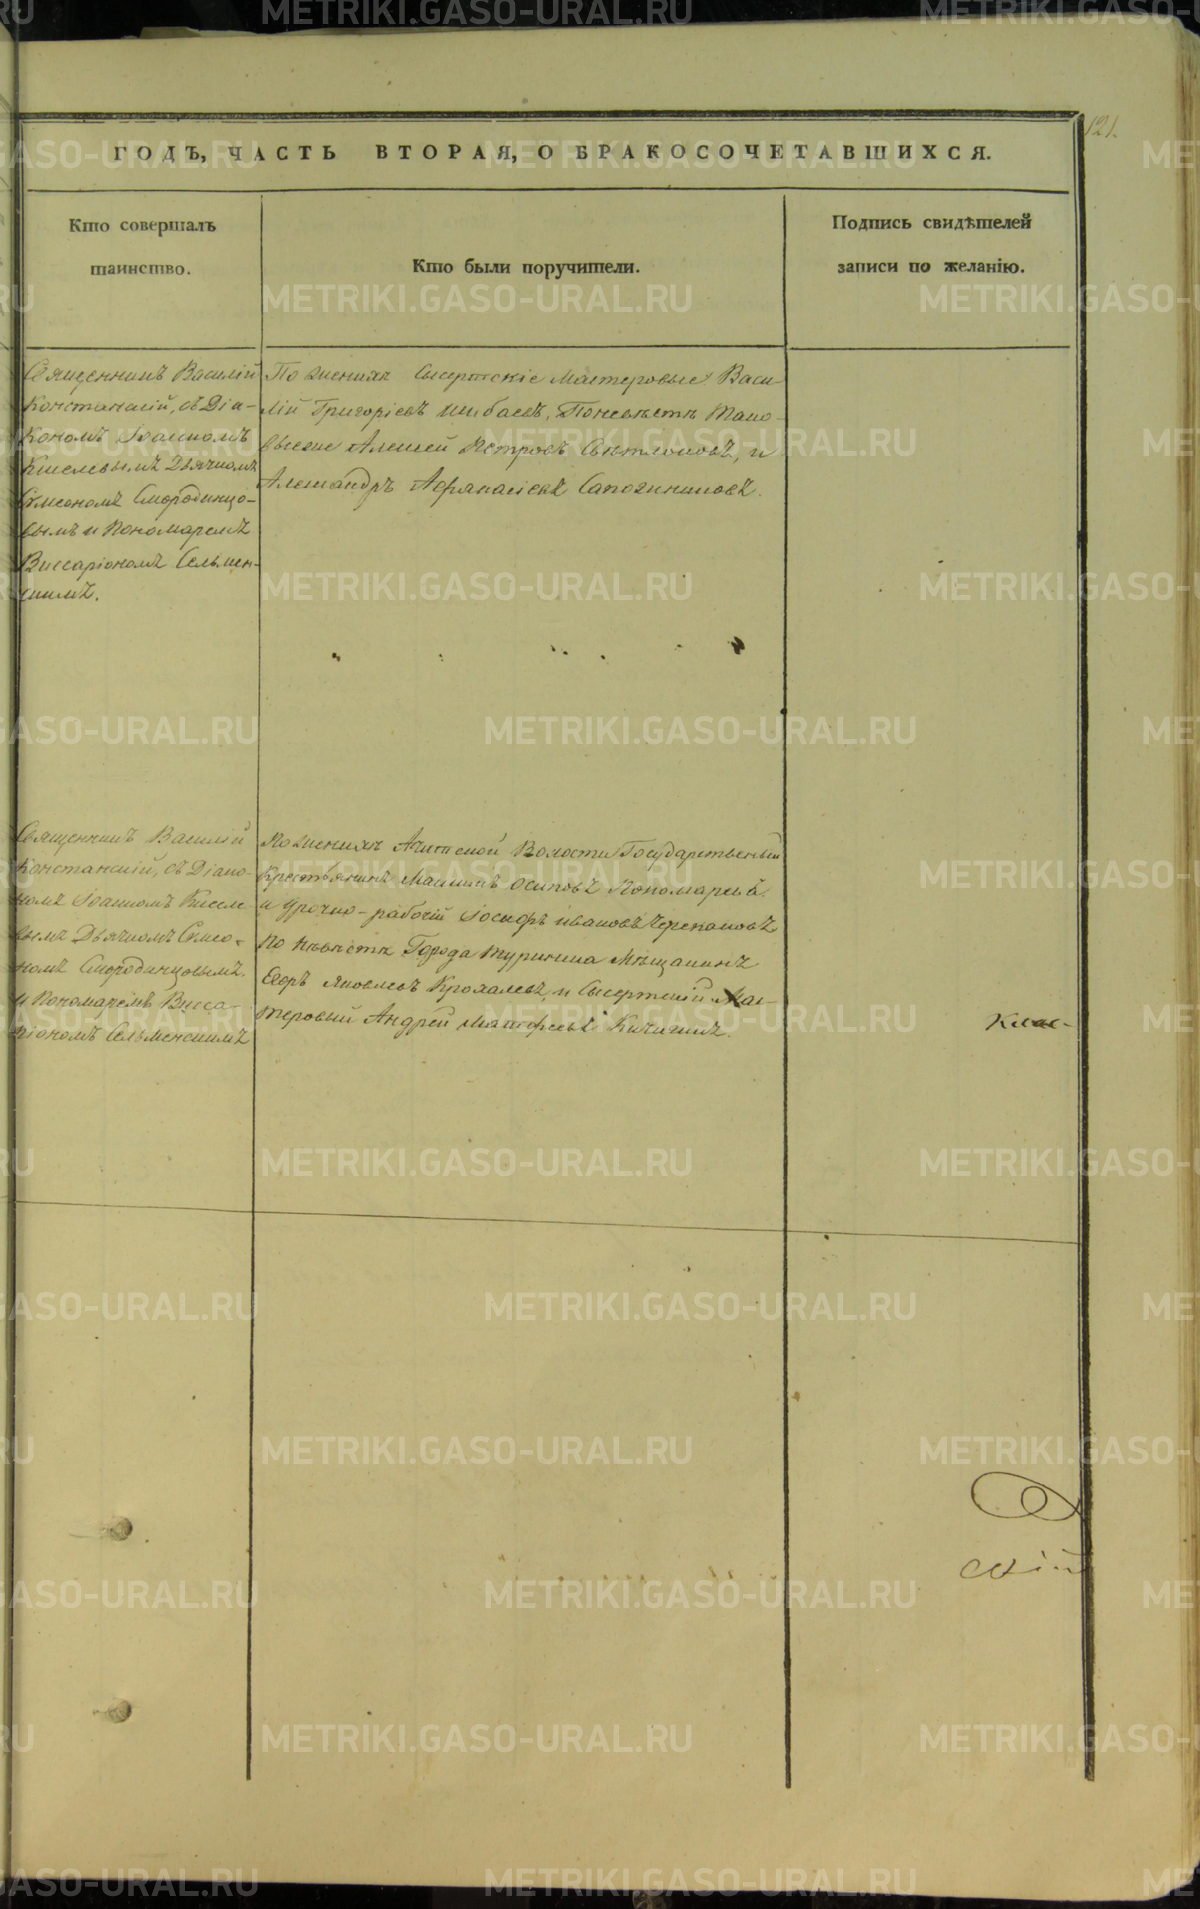 121.
ГОДЪ, ЧАСТЬ ВТОРАЯ, О БРАКОСОЧЕТАВШИХСЯ.
Кто совершалъ
таинство.
Кто были поручители.
Подпись свидѣтелей
записи по желанію.
Священникъ Василій
Констанскій, съ Діа-
кономъ Іоанномъ
Киселевымъ Дьячкомъ
Симеономъ Смородинцо-
вымъ и Пономаремъ
Виссаріономъ Сельмен-
скимъ.
По женихѣ Сысертскіе Мастеровые Васи-
лій Григорьевъ Шибаевъ, По невѣстѣ Тако-
выеже Алексей Петровъ Свѣтлоковъ, и
Александръ Афанасьевъ Сапожниковъ.
Священникъ Василій
Констанскій, съ Діако-
номъ Іоанномъ Киселе-
вымъ Дьячкомъ Симео-
номъ Смородинцовымъ
и Пономаремъ Висса-
ріономъ Сельменскимъ
По женихѣ Ачитской Волости Государственный
Крестьянинъ Максимъ Осиповъ Пономаревъ
и Урочно-рабочій Іосифъ Ивановъ Черепановъ
По Невѣстѣ Города Туринска Мѣщанинъ
Егоръ Яковлевъ Крохалевъ, и Сысертскій Мас-
теровый Андрей Матфеевъ Кичигинъ.
METRIKI.GASO-URAL.RU